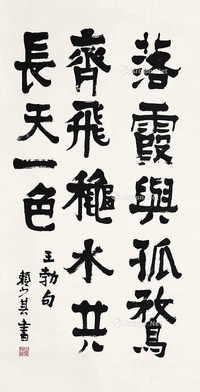 落霞與孤鶩
齊飛穐水共
長天一色
王勃句
賴少其書